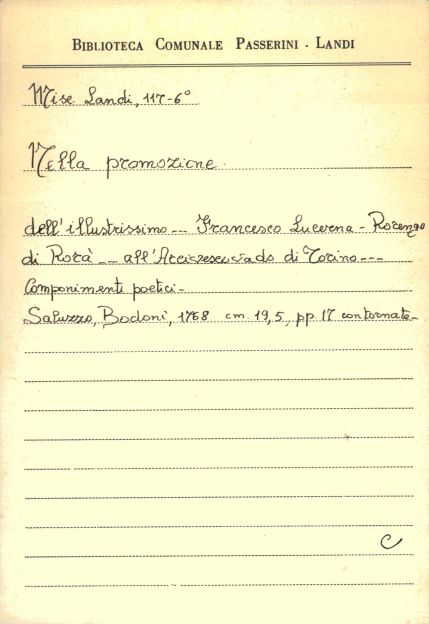 BIBLIOTECA COMUNALE PASSERINI - LANDI
Misc Landi, 117-6°
Nella promozione
dell'illustrissimo -- Francesco Lucerna - Rorengo
di Rorà -- all'Arcivescovado di Torino ---
Componimenti poetici -
Saluzzo, Bodoni, 1768 cm. 19,5, pp 17 contornate -
C